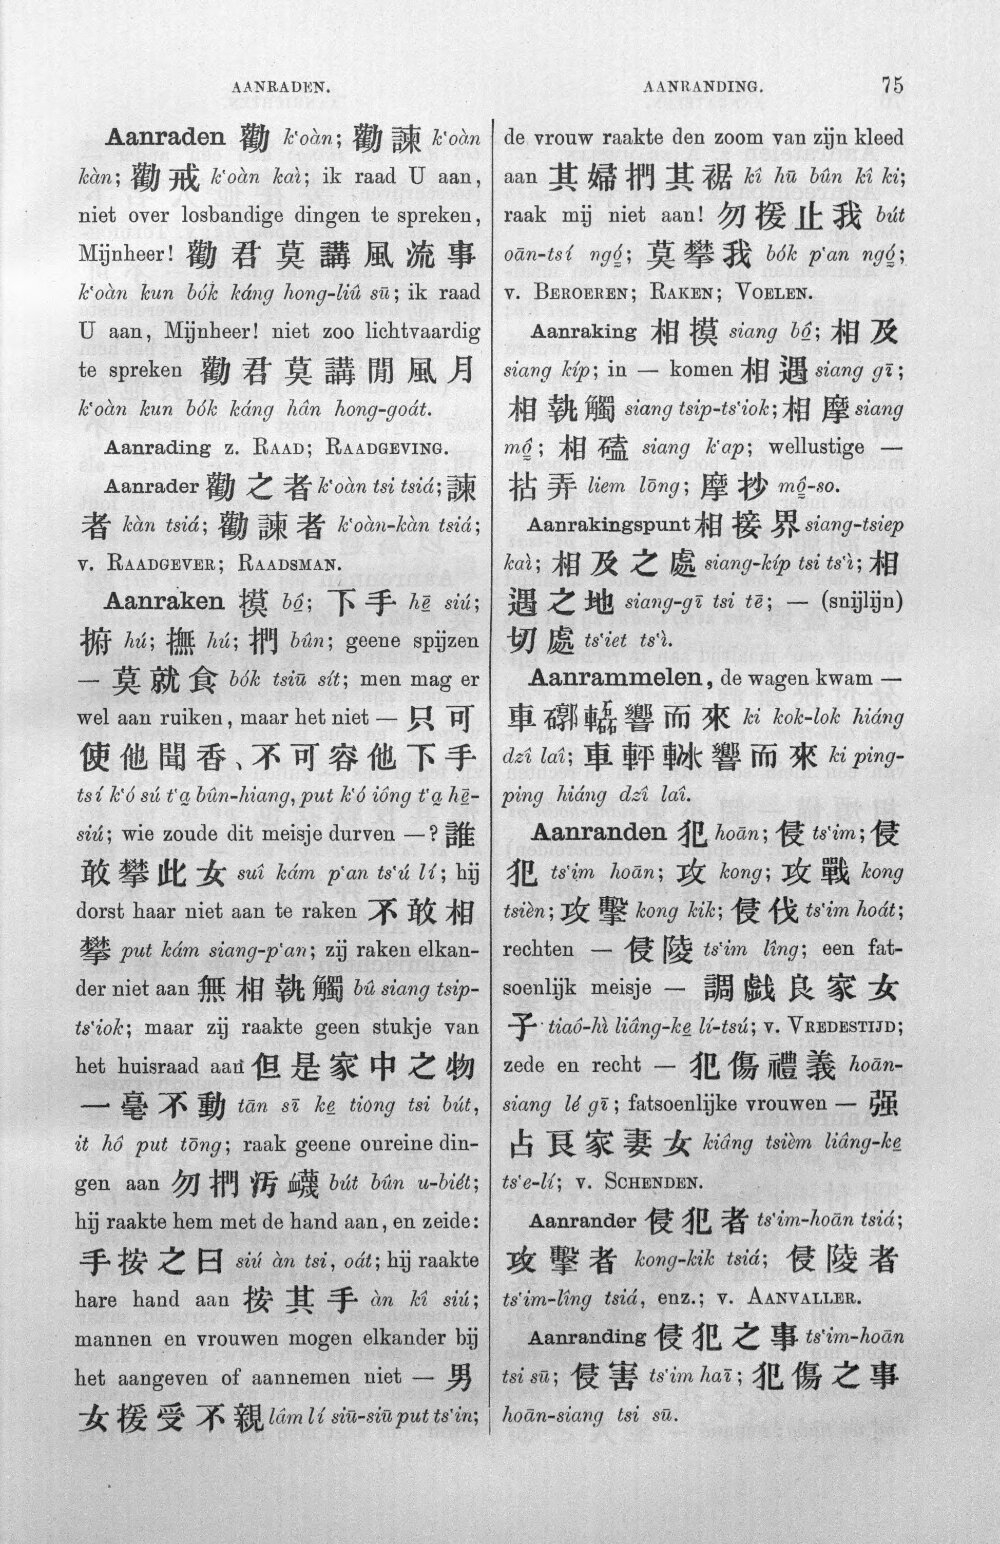 AANRADEN.
AANRANDING. 75
Aanraden 勸 k‘oàn; 勸諫 k‘oàn
kàn; 勸戒 k‘oàn kaì; ik raad U aan,
niet over losbandige dingen te spreken,
Mijnheer! 勸君莫講風流事
k‘oàn kun bók káng hong-liû sū; ik raad
U aan, Mijnheer! niet zoo lichtvaardig
te spreken 勸君莫講閒風月
k‘oàn kun bók káng hân hong-goát.
Aanrading z. RAAD; RAADGEVING.
Aanrader 勸之者 k‘oàn tsi tsiá; 諫
者 kàn tsiá; 勸諫者 k‘oàn-kàn tsiá;
v. RAADGEVER; RAADSMAN.
Aanraken 摸 bô̤; 下手 hē̤ siú;
捬 hú; 撫 hú; 捫 bûn; geene spijzen
— 莫就食 bók tsiū sít; men mag er
wel aan ruiken, maar het niet — 只可
使他聞香、不可容他下手
tsí k‘ó sú t‘a̤ bûn-hiang, put k‘ó iông t‘a̤ hē̤-
siú; wie zoude dit meisje durven —? 誰
敢攀此女 suî kám p‘an ts‘ú lí; hij
dorst haar niet aan te raken 不敢相
攀 put kám siang-p‘an; zij raken elkan-
der niet aan 無相執觸 bû siang tsip-
ts‘iok; maar zij raakte geen stukje van
het huisraad aan 但是家中之物
一毫不動 tān sī ke̤ tiong tsi bút,
it hô put tōng; raak geene onreine din-
gen aan 勿捫汚衊 bút bûn u-biét;
hij raakte hem met de hand aan, en zeide:
手按之曰 siú àn tsi, oát; hij raakte
hare hand aan 按其手 àn kî siú;
mannen en vrouwen mogen elkander bij
het aangeven of aannemen niet — 男
女援受不親 lâm lí siū-siū put ts‘in;
de vrouw raakte den zoom van zijn kleed
aan 其婦捫其裾 kî hū bûn kî ki;
raak mij niet aan! 勿援止我 bút
oān-tsí ngó̤; 莫攀我 bók p‘an ngó̤;
v. BEROEREN; RAKEN; VOELEN.
Aanraking 相摸 siang bô̤; 相及
siang kíp; in — komen 相遇 siang gī;
相執觸 siang tsip-ts‘iok; 相摩 siang
mô̤; 相磕 siang k‘ap; wellustige —
拈弄 liem lōng; 摩抄 mô̤-so.
Aanrakingspunt 相接界 siang-tsiep
kaì; 相及之處 siang-kíp tsi ts‘ì; 相
遇之地 siang-gī tsi tē; — (snijlijn)
切處 ts‘iet ts‘ì.
Aanrammelen, de wagen kwam —
車𥕖轆響而來 ki kok-lok hiáng
dzî laî; 車軯 響而來 ki ping-
ping hiáng dzî laî.
Aanranden 犯 hoān; 侵 ts‘im; 侵
犯 ts‘im hoān; 攻 kong; 攻戰 kong
tsièn; 攻擊 kong kik; 侵伐 ts‘im hoát;
rechten — 侵陵 ts‘im lîng; een fat-
soenlijk meisje — 調戲良家女
子 tiaô-hì liâng-ke̤ lí-tsú; v. VREDESTIJD;
zede en recht — 犯傷禮義 hoān-
siang lé gī; fatsoenlijke vrouwen — 强
占良家妻女 kiâng tsièm liâng-ke̤
ts‘e-lí; v. SCHENDEN.
Aanrander 侵犯者 ts‘im-hoān tsiá;
攻擊者 kong-kik tsiá; 侵陵者
ts‘im-lîng tsiá, enz.; v. AANVALLER.
Aanranding 侵犯之事 ts‘im-hoān
tsi sū; 侵害 ts‘im haī; 犯傷之事
hoān-siang tsi sū.